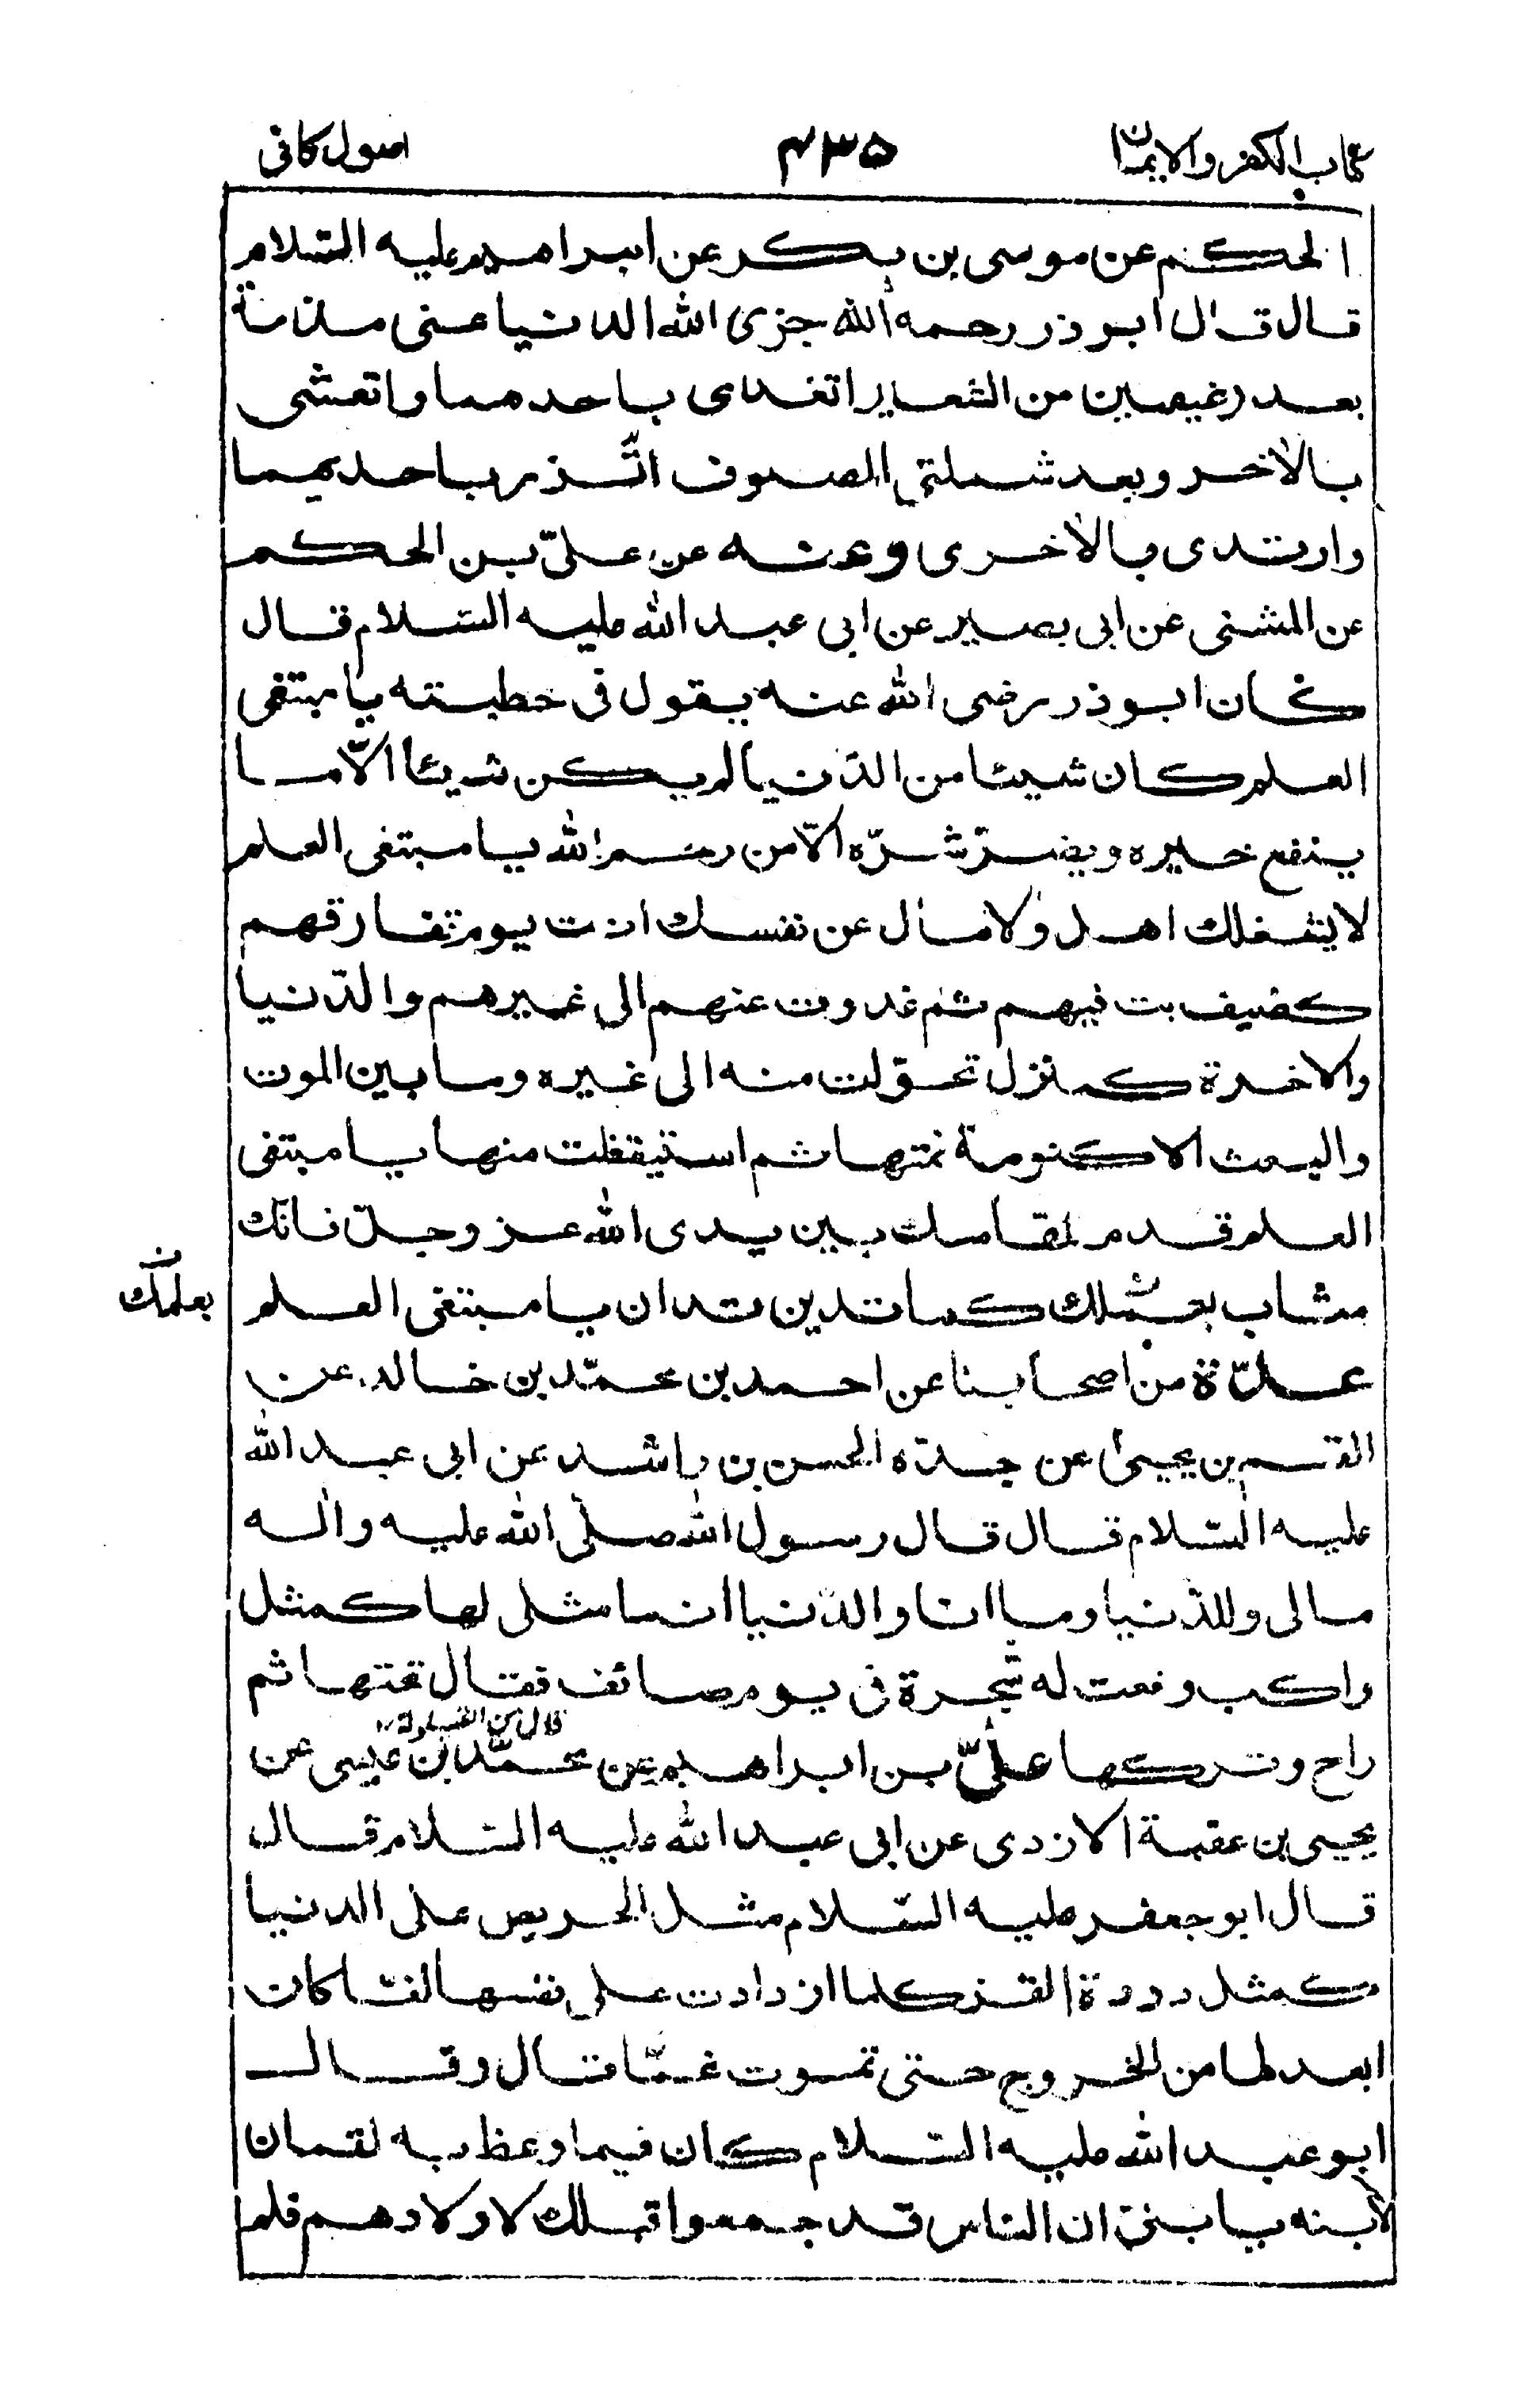 كتاب الكفر والايمان ۴۳۵ اصول كافى
الحكم عن موسى بن بكر عن ابراهيم عليه السّلام
قال قال ابوذر رحمه الله جزى الله الدنيا عنى مذمة
بعد رغيفين من الشعير اتغدى باحدهما واتعشى
بالاخر وبعد شملتى الصوف اتّزر باحديهما
وارتدى بالاخرى وعنه عن علىّ بن الحكم
عن المثنى عن ابى بصير عن ابى عبد الله عليه السّلام قال
كان ابوذر رضى الله عنه يقول فى خطبته يا مبتغى
العلم كان شيئا من الدّنيا لم يكن شيئا الّا ما
ينفع خيره ويضرّ شرّه الّا من رحم الله يا مبتغى العلم
لا يشغلك اهل ولا مال عن نفسك انت يوم تفارقهم
كضيف بت فيهم ثم غدوت عنهم الى غيرهم والدّنيا
والاخرة كمنزل تحوّلت منه الى غيره وما بين الموت
والبعث الا كنومة نمتها ثم استيقظت منها يا مبتغى
العلم قدم لمقامك بين يدى الله عز وجلّ فانّك
مثاب بعملك كما تدين تدان يا مبتغى العلم
بعلمك ن
عدّة من اصحابنا عن احمد بن محمّد بن خالد عن
القسم بن يحيى عن جدّه الحسن بن راشد عن ابى عبد الله
عليه السّلام قال قال رسول الله صلّى الله عليه واله
مالى وللدّنيا وما انا والدّنيا انما مثلى لها كمثل
راكب رفعت له شجرة فى يوم صائف فقال تحتها ثم
قال من القيلولة ۱۲
راح وتركها علىّ بن ابراهيم عن محمّد بن عيسى عن
يحيى بن عقبة الازدى عن ابى عبد الله عليه السّلام قال
قال ابو جعفر عليه السّلام مثل الحريص على الدنيا
كمثل دودة القز كلما ازدادت على نفسها لفّا كان
ابعد لها من الخروج حتى تموت غمّا قال وقال
ابو عبد الله عليه السّلام كان فيما وعظ به لقمان
لابنه يا بنىّ ان الناس قد جمعوا قبلك لاولادهم فلم